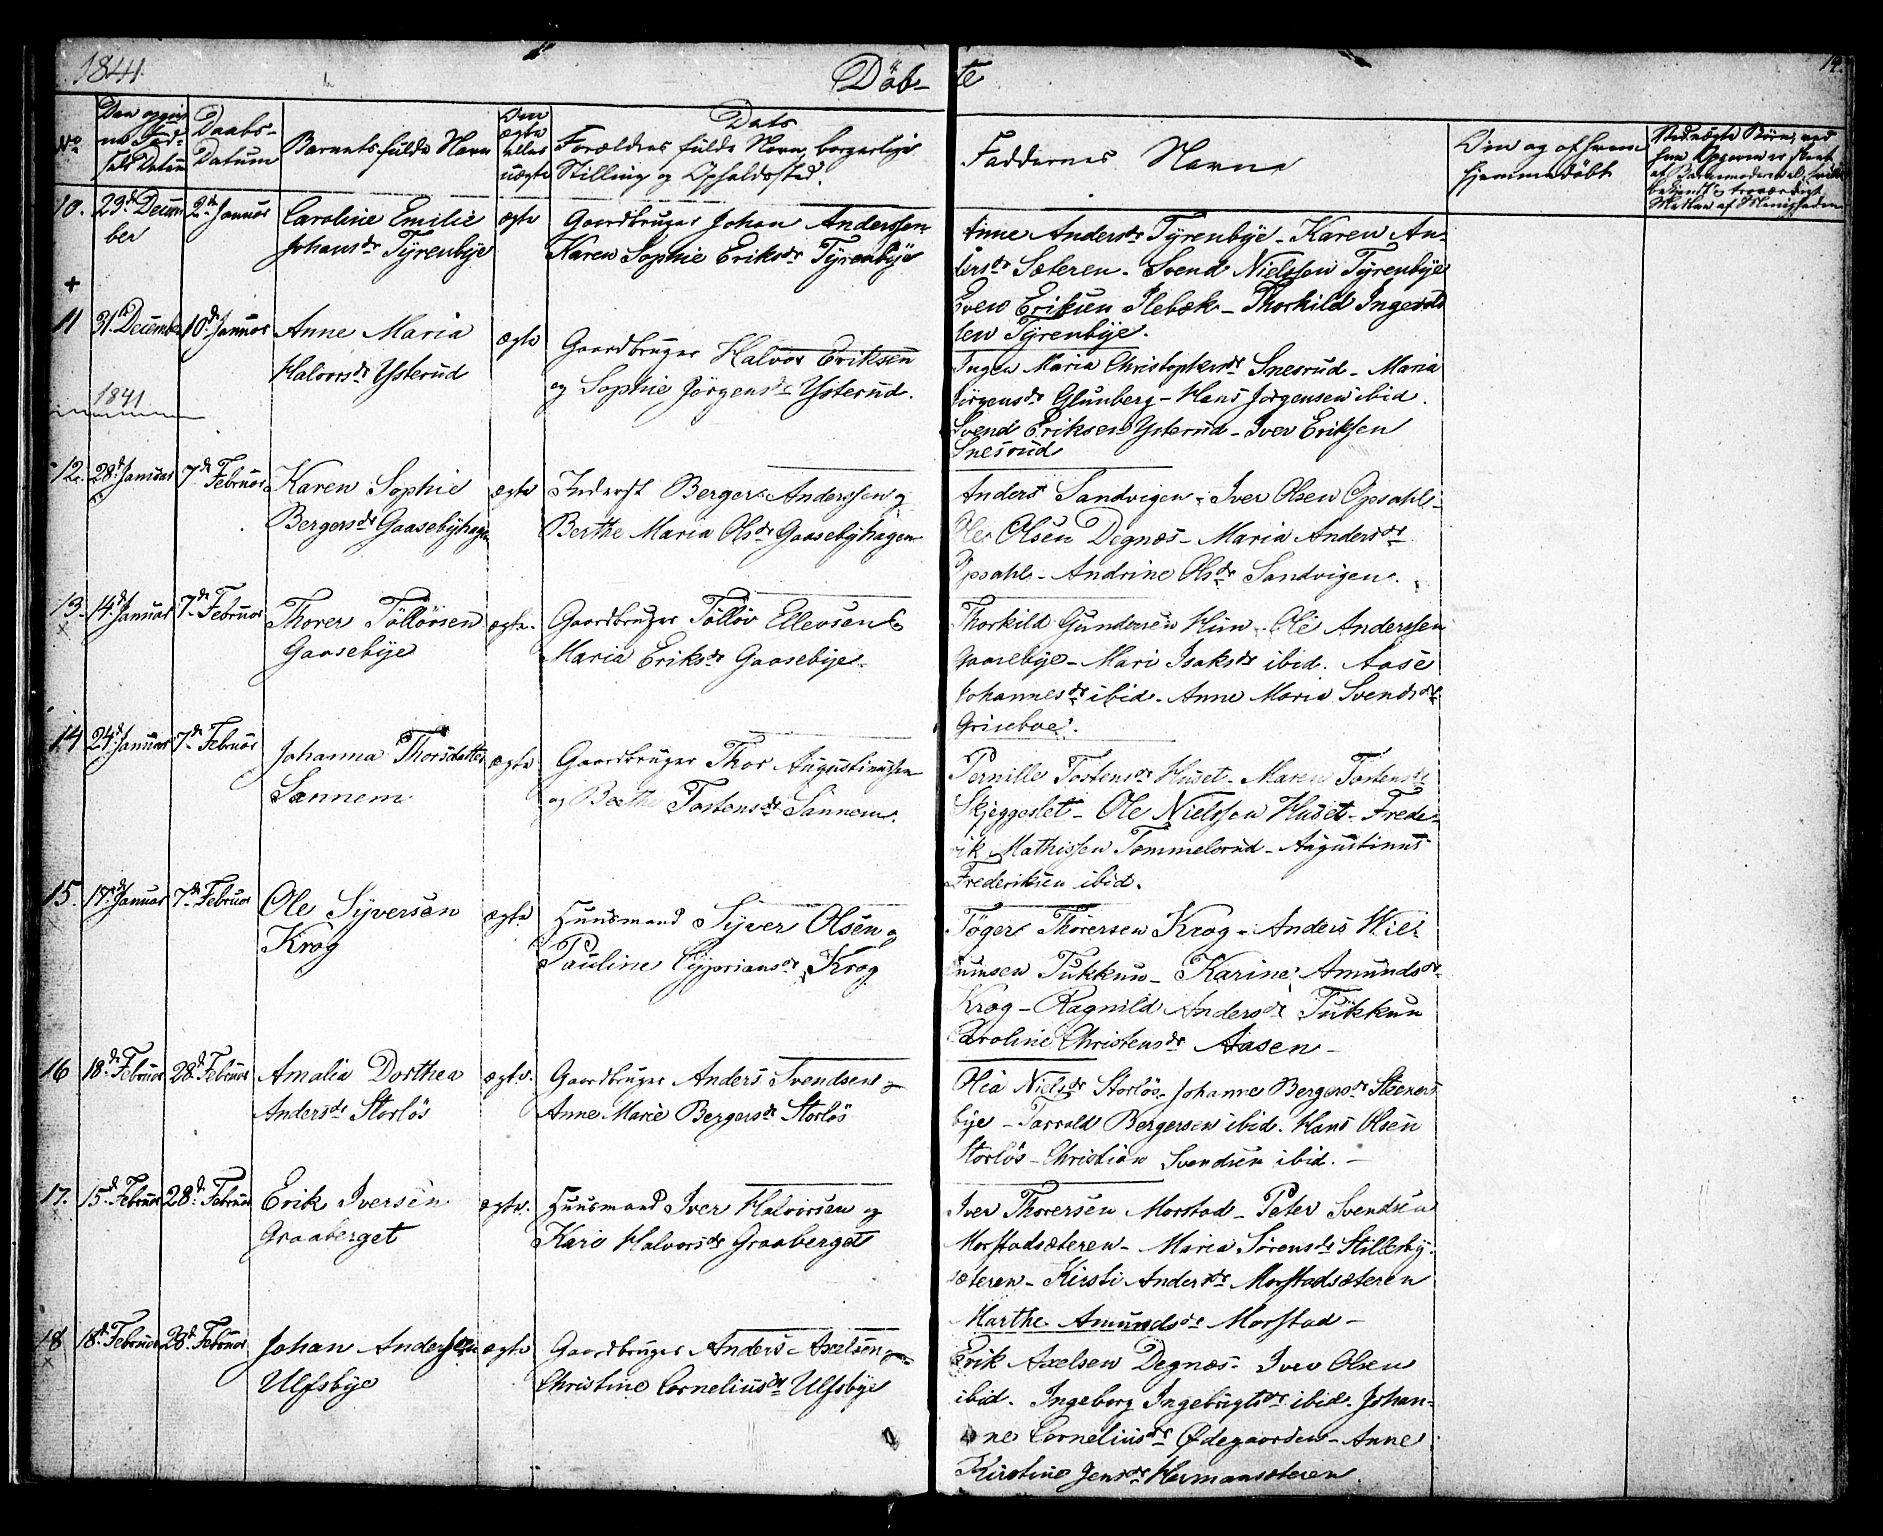 1841
Döb-
te
14.
No
Den opgiv
ne Fød-
sels Datum
Daabs-
Datum
Barnets fulde Navn
Om
ægte
eller
uægte
Dets
Forældres fulde Navn, borgerlige
Stilling og Opholdssted.
Faddernes Navne
Om og af hvem
hjemmedøbt
Ved uægte Børn, ved
hvem Opgaven er skeet
10. 29de Decem 2den Januar Caroline Emilie ægte Gaardbruger Johan Anderssen
ber Johansdr Tÿrenbÿe Karen Sophie Eriksdr Tÿrenbÿe
Anne Andersdr Tÿrenbÿe - Karen An-
dersdr Sæteren - Svend Nielssen Tÿrenbÿe
Even Eriksen Ilebæk - Thorkild Ingevald
sen Tÿrenbÿe.
+
11 31te Decembr 10de Januar Anne Maria ægte Gaardbruger Halvor Eriksen
Halvorsdr Ysterud og Sophie Jörgensdr Ysterud.
1841
Ingen Maria Christophersdr Snesrud - Maria
Jörgensdr Glünberg - Hans Jørgensen ibid.
Svend Eriksen Ysterud - Iver Eriksen
Snesrud
12. 28de Januar 7de Februar Karen Sophie ægte Inderst Berger Anderssen og
Bergersdr Gaasebÿhagen Berthe Maria Olsdr Gaasebÿhagen
Anders Sandvigen - Iver Olsen Opsahl -
Ole Olsen Degnæs - Maria Andersdr
Opsahl - Andrine Olsdr Sandvigen.
13. 14de Januar 7de Februar Thorer Töllöfsen ægte. Gaardbruger Töllöv Ellevsen &
x Gaasebÿe Maria Eriksdr Gaasebÿe.
Thorkild Gundersen Hün - Ole Anderssen
Gaasebÿe - Mari Isaksdr ibid. Aase
Johannesdr ibid. Anne Maria Svendsdr
Griseboe.
14 24de Januar 7de Februar Johanna Thorsdatter ægte Gaardbruger Thor Augustinussen
Sannem og Berthe Tostensdr Sannem.
Pernille Tostensdr Huset - Maren Tostensdr
Skjeggeslet - Ole Nielssen Huset - Frede-
rik Mathissen Tommelsrud - Augustinus
Frederiksen ibid.
15. 17de Januar 7de Februar Ole Sÿversen ægte Huusmand Sÿver Olsen og
x Krog Pauline Cÿpriansdr Krog
Töger Thorersen Krog - Anders Wil-
lumsen Tukkun - Karine Amundsdr
Krog - Ragnild Andersdr Tukkun
Caroline Christensdr Aasen -
16 18de Februar 28de Februar Amalia Dorthea ægte. Gaardbruger Anders Svendsen og
Andersdr Storlös Anne Marie Bergersdr Storlös
Olia Nielsdr Storlös - Johanne Bergersdr Steners
bÿe - Tarrald Bergersen ibid. Hans Olsen
Storlös - Christian Svendsen ibid. -
17. 15de Februar 28de Februar Erik Iversen ægte. Huusmand Iver Halvorsen og
Graaberget Kari Halvorsdr Graaberget
Iver Thorersen Morstad - Peter Svendsen
Morstadsæteren - Maria Sörensdr Stillesbÿ-
sæteren - Kirsti Andersdr Morstadsæteren
Marthe Amundsdr Morstad -
18 18de Februar 28de Februar Johan Anderssen ægte Gaardbruger Anders Axelsen og
x Ulfsbÿe Christine Corneliusdr Ulfsbÿe
Erik Axelsen Degnæs - Iver Olsen
ibid. Ingeborg Ingebrigtsdr ibid. Johan-
ne Corneliusdr Ødegaarden - Anne
Kirstine Jensdr Hermansæteren.